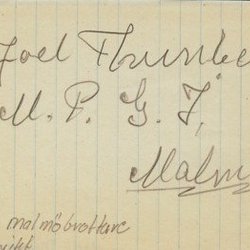 Joel Thunbe
M. P. G. I,
Malm
malmöbrottare